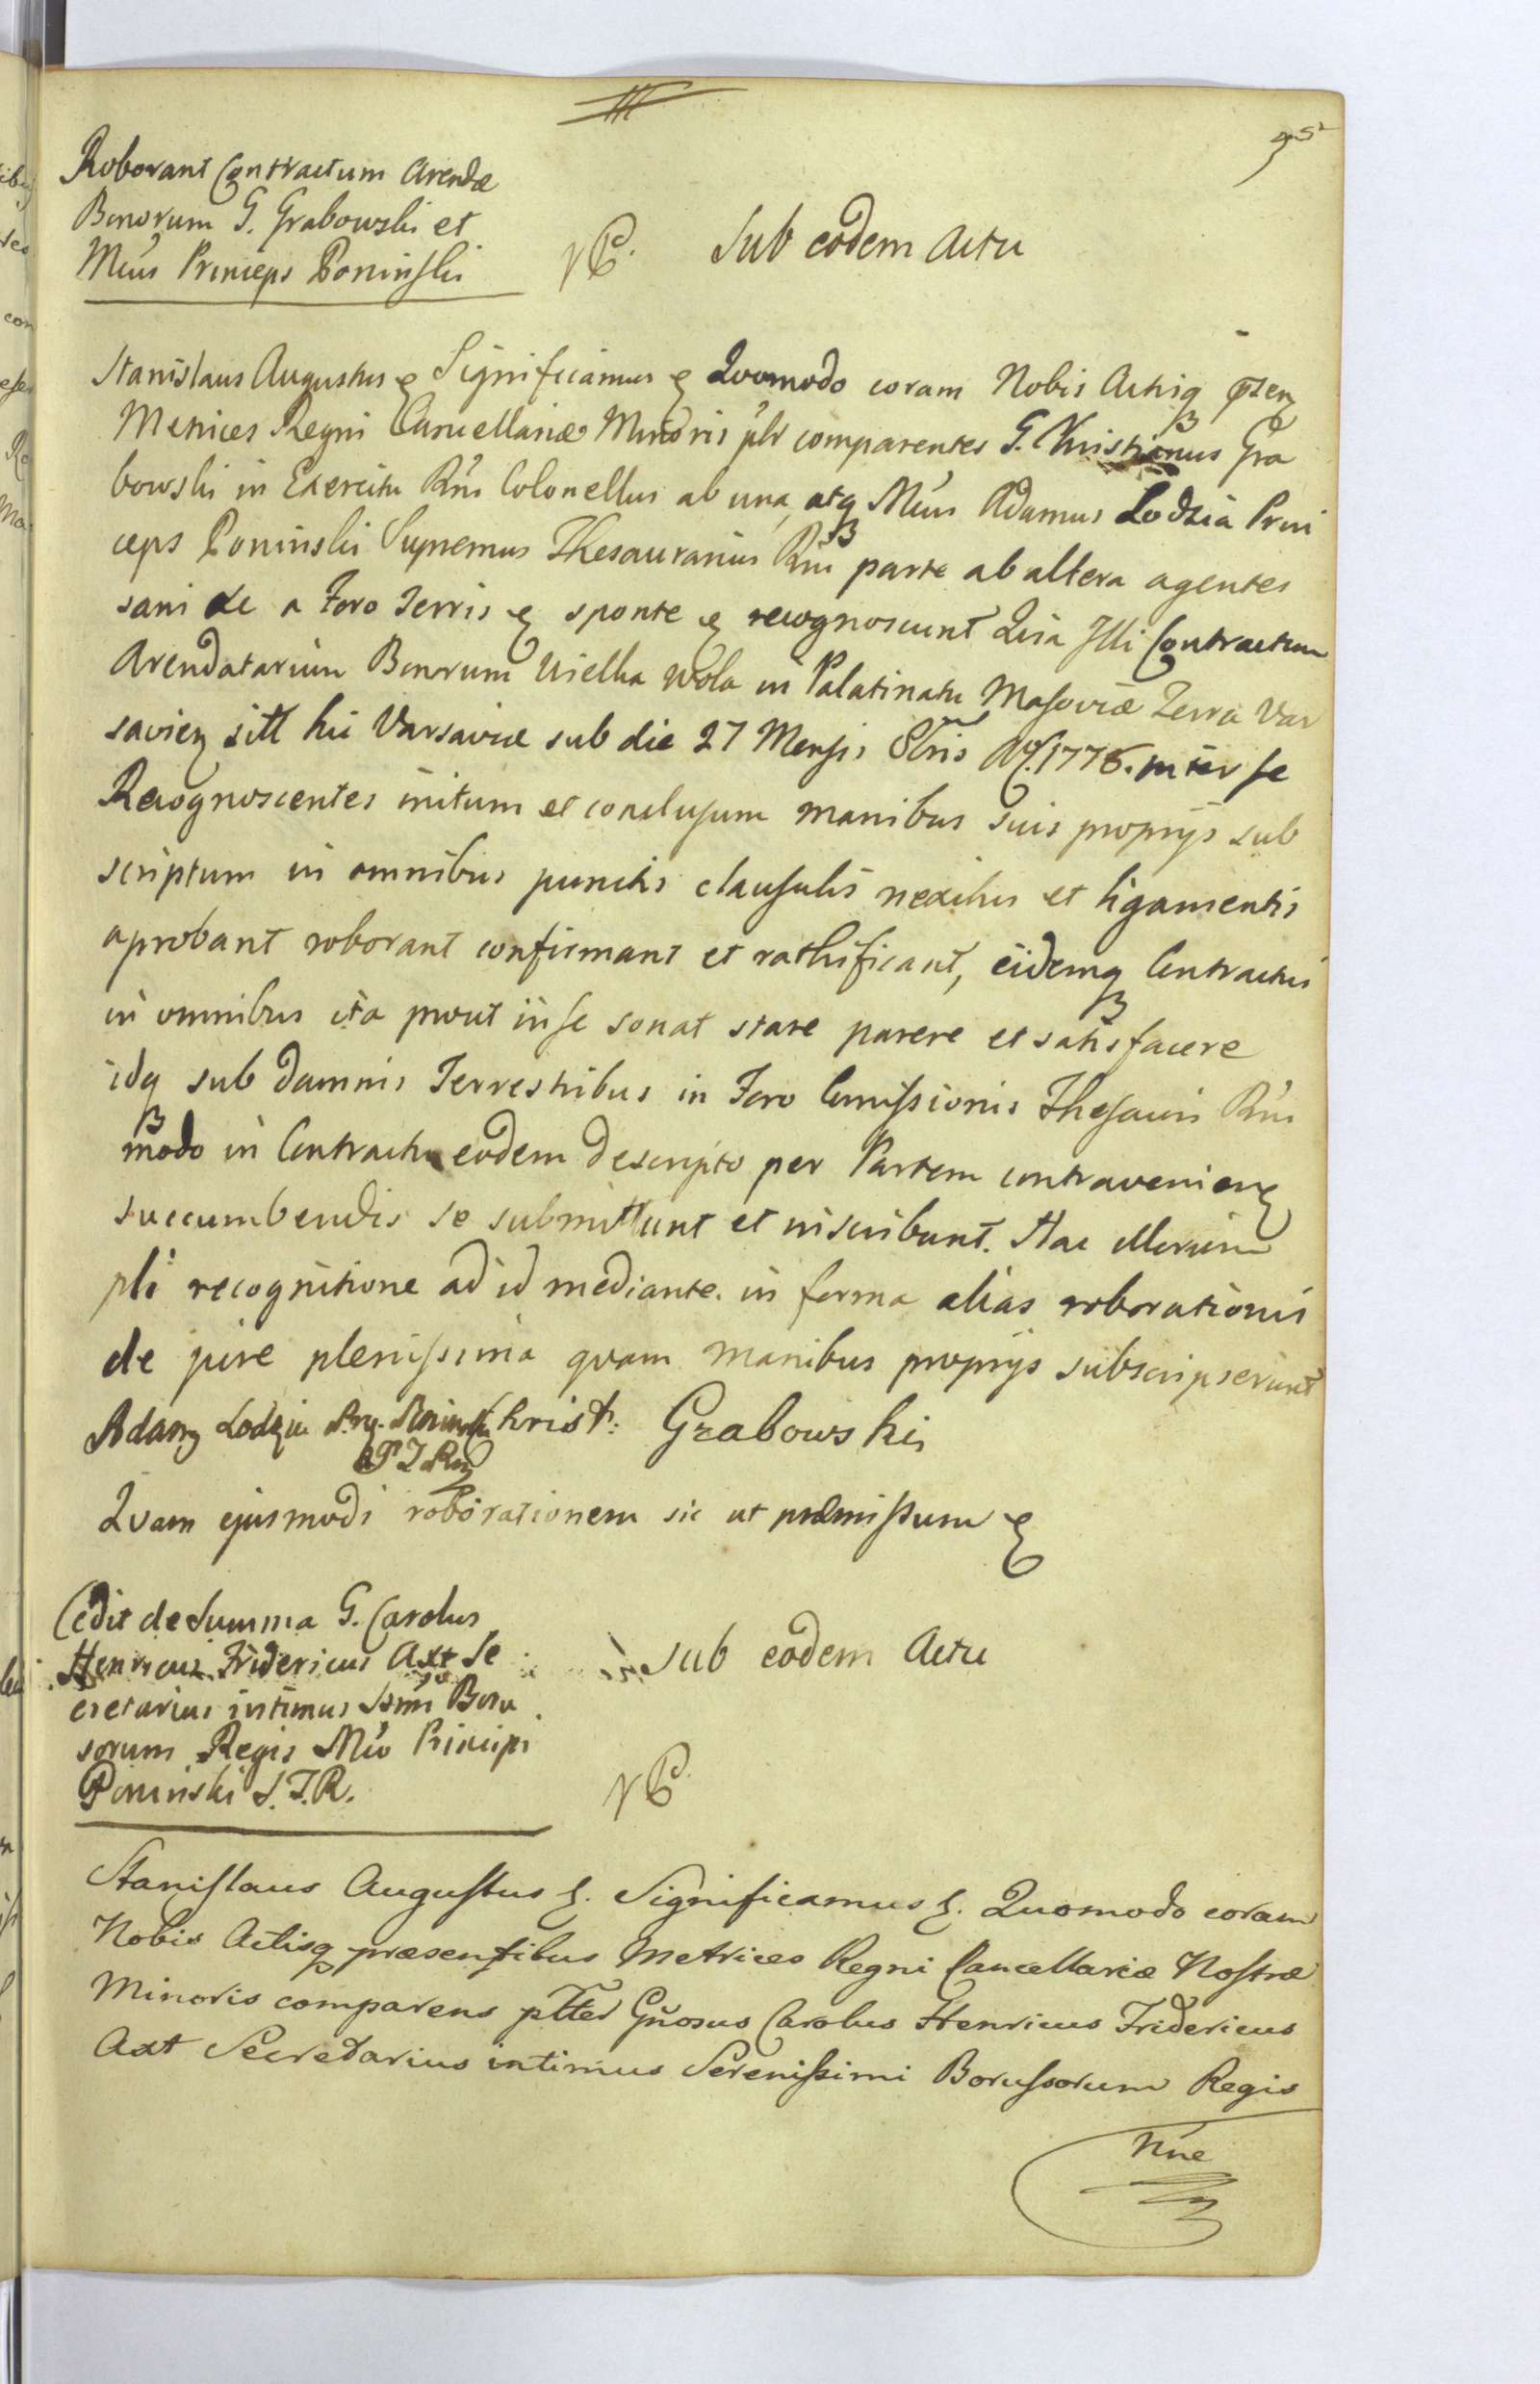 Roborant Contractum Arendæ
Bonorum G. Grabowski et
Mcús Princeps Poninski
Sub eodem Actu
Stanislaus Augustus Significamus Quomodo coram Nobis Actisq
Metrices Regni Cancellariæ Minoris plr comparentes G. Christianus Gra
bowski in Exercitu Rni Colonellus ab una, atq Mcús Adamus Lodzia Prin
ceps Poninski Supremus Thesaurarius Rni parte ab altera agentes
sani de a Foro Terris sponte recognoscunt Quia Illi Contractum
Arendatarium Bonorum Wielka Wola in Palatinatu Masoviæ Terra Var
savien sitt hic Varsaviæ sub die 27 Mensis 8bris Aº 1776. inter se
Recognoscentes initum et conclusum manibus suis proprys sub
scriptum in omnibus punctis clausulis nexibus et ligamentis
aprobant roborant confirmant et rathificant, eidemq Contractui
in omnibus ita prout in se sonat stare parere et satisfacere
idq sub damnis Terrestribus in Foro Comissionis Thesauri Rni
modo in Contractu eodem descripto per Partem contravenien
succumbendis se submittunt et inscribunt. Hac illorum
pli recognitione ad id mediante. in forma alias roborationis
de jure plenissima quam manibus proprys subscripserunt
Adam Lodzia Poninski Christ: Grabowski
Quam ejusmodi roborationem sic ut præmissum
Cedit de Summa G. Carolus
Henricus Fridericus Axt Se
cretarius intimus Ssmi Boru
sorum Regis Mco Principi
Poninski S.T.R.
Sub eodem Actu
Stanislaus Augustus Significamus Quomodo coram
Nobis Actisq præsentibus Metrices Regni Cancellariæ Nostræ
Minoris comparens pltter Gñosus Carolus Henricus Fridericus
Axt Secretarius intimus Serenissimi Borussorum Regis